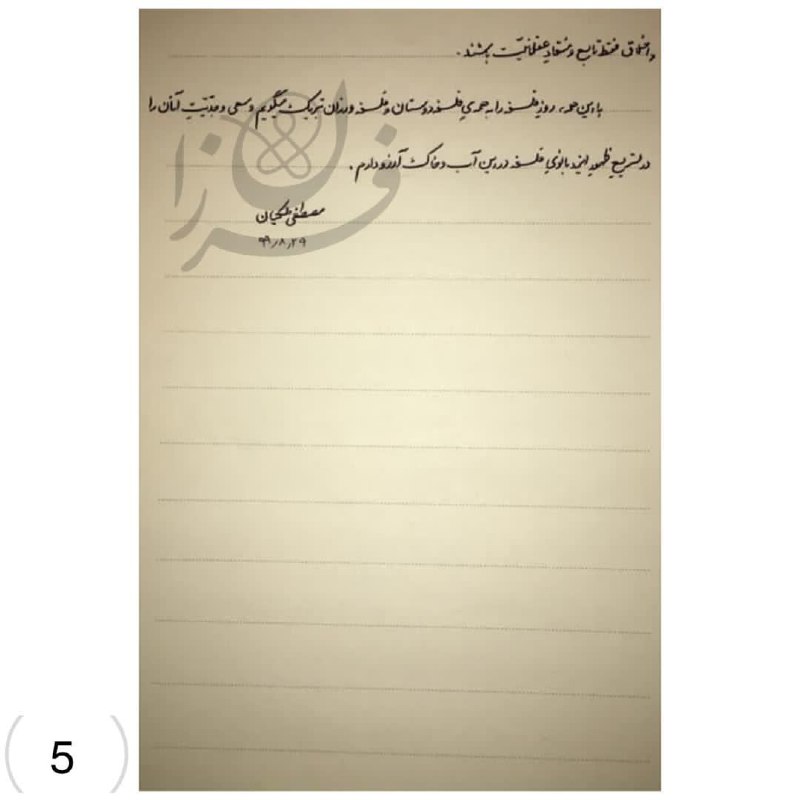 و اخلاق فقط تابع و منقاد عقلانیّت باشند.
با این همه، روز فلسفه را به همه‌ی فلسفه‌دوستان و فلسفه‌ورزان تبریک میگویم و سعی و جدّیّت آنان را
در تسریع ظهور ایزدبانوی فلسفه در این آب و خاک آرزو دارم.
مصطفی ملکیان
۹۹٫۸٫۲۹
فرزان
5